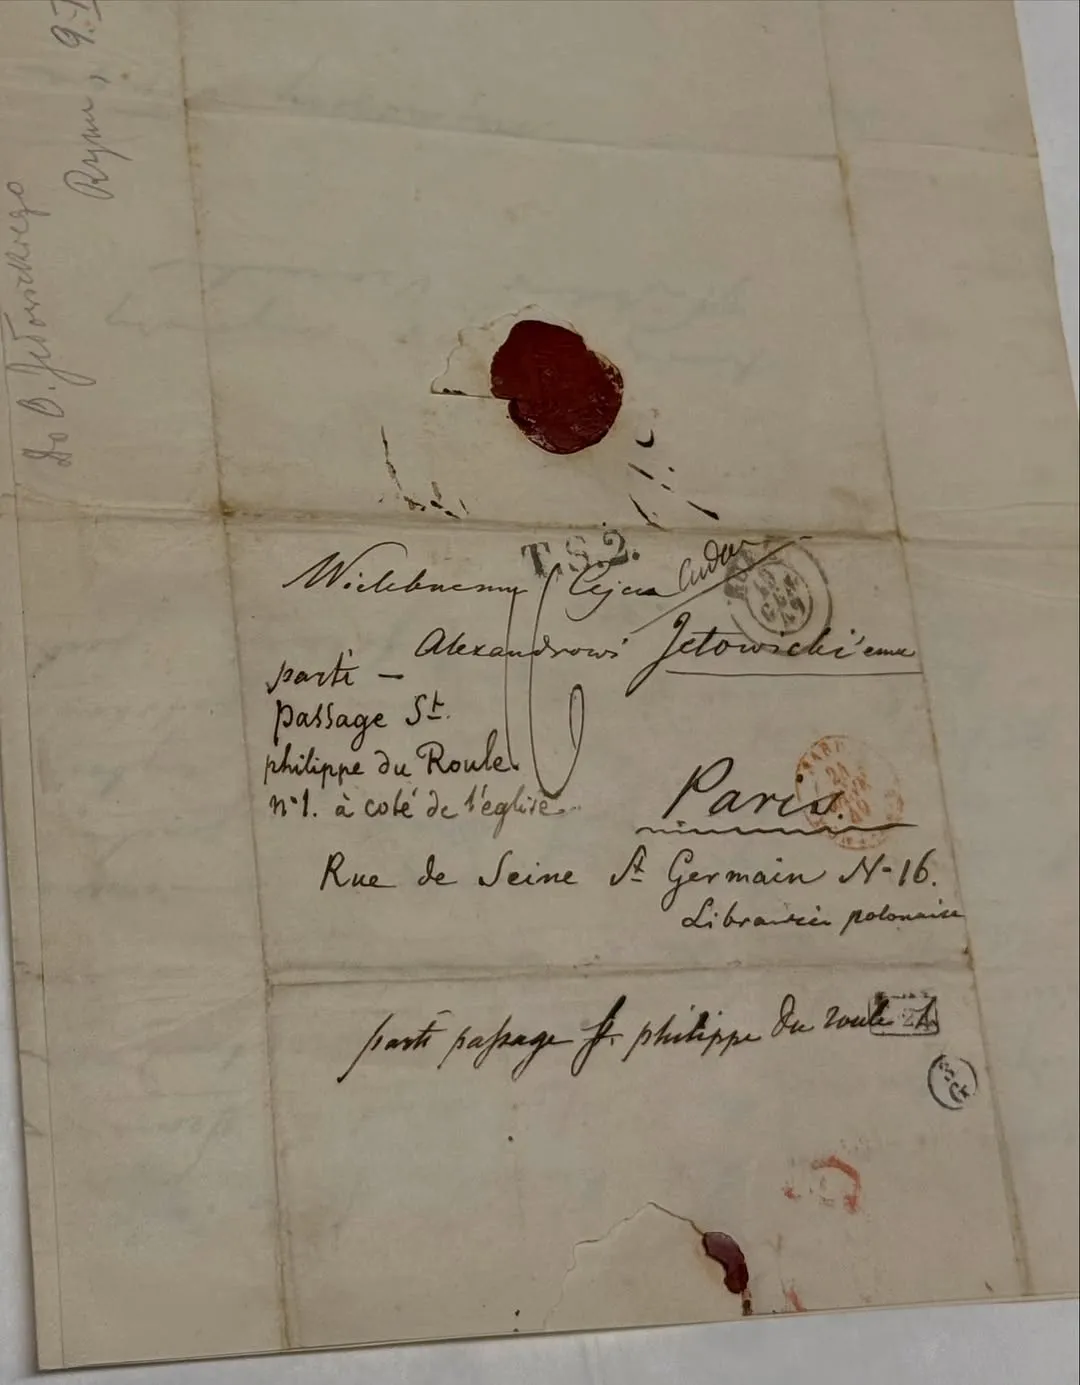 Do B. Jełowickiego
Rzym, 9.
T.S.2.
Wielebnemu
Alexandrowi Jełowicki'emu
parti —
passage St.
philippe du Roule.
n°1. à coté de l'église
Paris.
Rue de Seine St Germain N-16.
Librairie polonaise
parti passage St. philippe du roule 1.